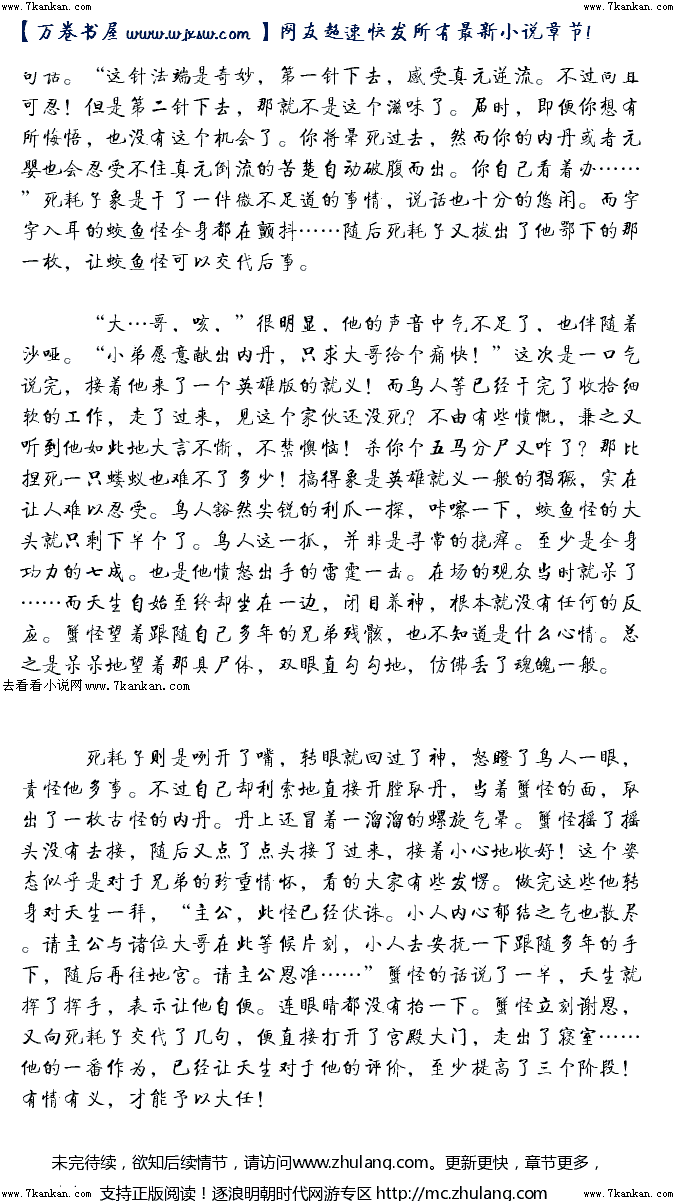 www.7kankan.com www.7kankan.com
【万卷书屋www.wjxsw.com】网友超速快发所有最新小说章节!
句话。“这针法端是奇妙，第一针下去，感受真元逆流。不过尚且
可忍！但是第二针下去，那就不是这个滋味了。届时，即便你想有
所悔悟，也没有这个机会了。你将晕死过去，然而你的内丹或者元
婴也会忍受不住真元倒流的苦楚自动破腹而出。你自己看着办……
”死耗子象是干了一件微不足道的事情，说话也十分的悠闲。而字
字入耳的蛟鱼怪全身都在颤抖……随后死耗子又拔出了他鄂下的那
一枚，让蛟鱼怪可以交代后事。
“大…哥，咳，”很明显，他的声音中气不足了，也伴随着
沙哑。“小弟愿意献出内丹，只求大哥给个痛快！”这次是一口气
说完，接着他来了一个英雄版的就义！而鸟人等已经干完了收拾细
软的工作，走了过来，见这个家伙还没死？不由有些愤慨，兼之又
听到他如此地大言不惭，不禁懊恼！杀你个五马分尸又咋了？那比
捏死一只蝼蚁也难不了多少！搞得象是英雄就义一般的猖獗，实在
让人难以忍受。鸟人豁然尖锐的利爪一探，咔嚓一下，蛟鱼怪的大
头就只剩下半个了。鸟人这一抓，并非是寻常的挠痒。至少是全身
功力的七成。也是他愤怒出手的雷霆一击。在场的观众当时就呆了
……而天生自始至终却坐在一边，闭目养神，根本就没有任何的反
应。蟹怪望着跟随自己多年的兄弟残骸，也不知道是什么心情。总
之是呆呆地望着那具尸体，双眼直勾勾地，仿佛丢了魂魄一般。
去看看小说网www.7kankan.com
死耗子则是咧开了嘴，转眼就回过了神，怒瞪了鸟人一眼，
责怪他多事。不过自己却利索地直接开膛取丹，当着蟹怪的面，取
出了一枚古怪的内丹。丹上还冒着一溜溜的螺旋气晕。蟹怪摇了摇
头没有去接，随后又点了点头接了过来，接着小心地收好！这个姿
态似乎是对于兄弟的珍重情怀，看的大家有些发愣。做完这些他转
身对天生一拜，“主公，此怪已经伏诛。小人内心郁结之气也散尽
。请主公与诸位大哥在此等候片刻，小人去安抚一下跟随多年的手
下，随后再往地宫。请主公恩准……”蟹怪的话说了一半，天生就
挥了挥手，表示让他自便。连眼睛都没有抬一下。蟹怪立刻谢恩，
又向死耗子交代了几句，便直接打开了宫殿大门，走出了寝室……
他的一番作为，已经让天生对于他的评价，至少提高了三个阶段！
有情有义，才能予以大任！
未完待续，欲知后续情节，请访问www.zhulang.com。更新更快，章节更多，
支持正版阅读！逐浪明朝时代网游专区 http://mc.zhulang.com
www.7kankan.com www.7kankan.com